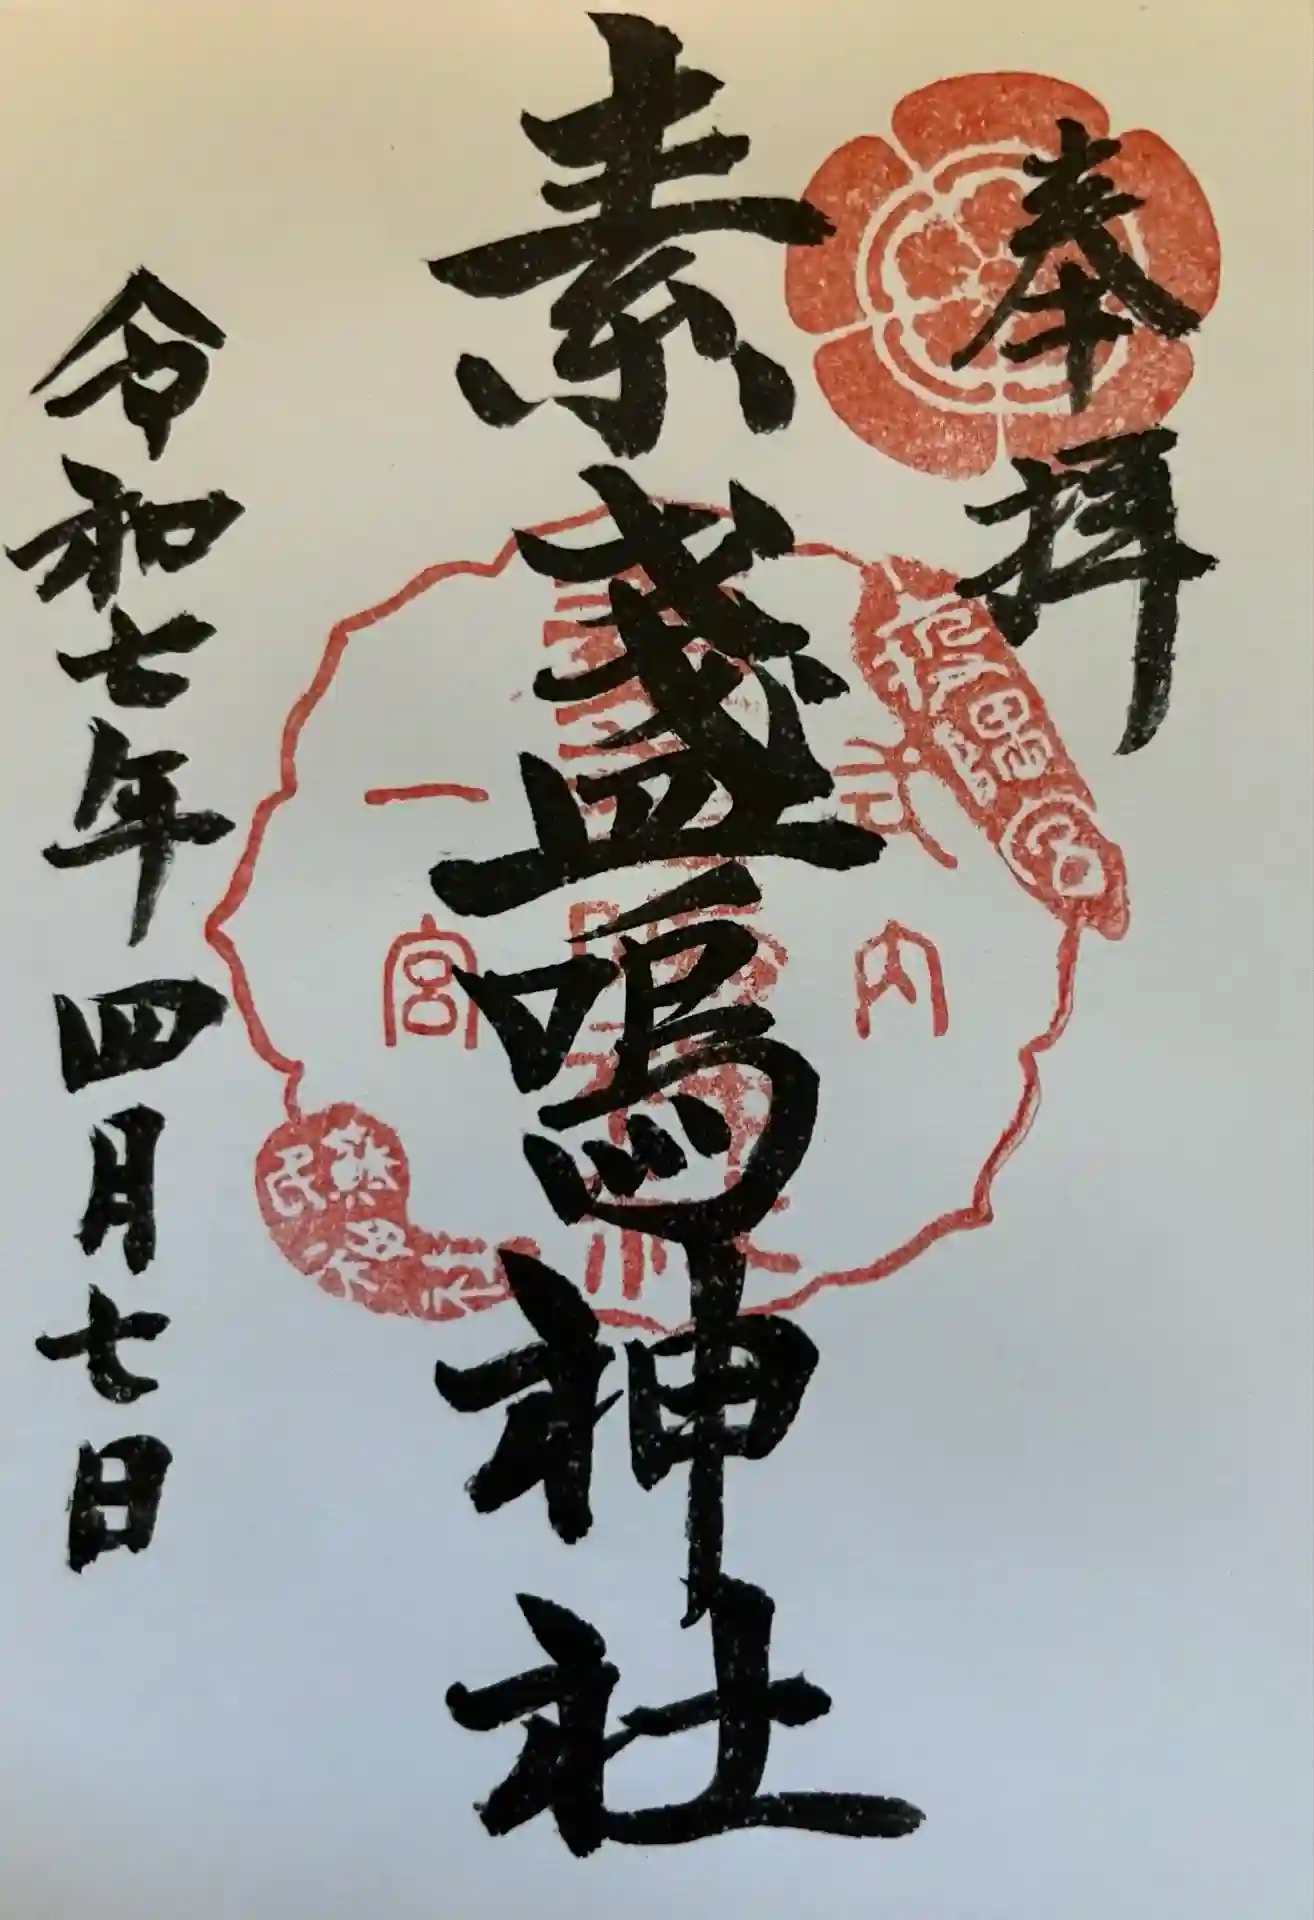 奉拝
素盞嗚神社
令和七年四月七日
内
一宮